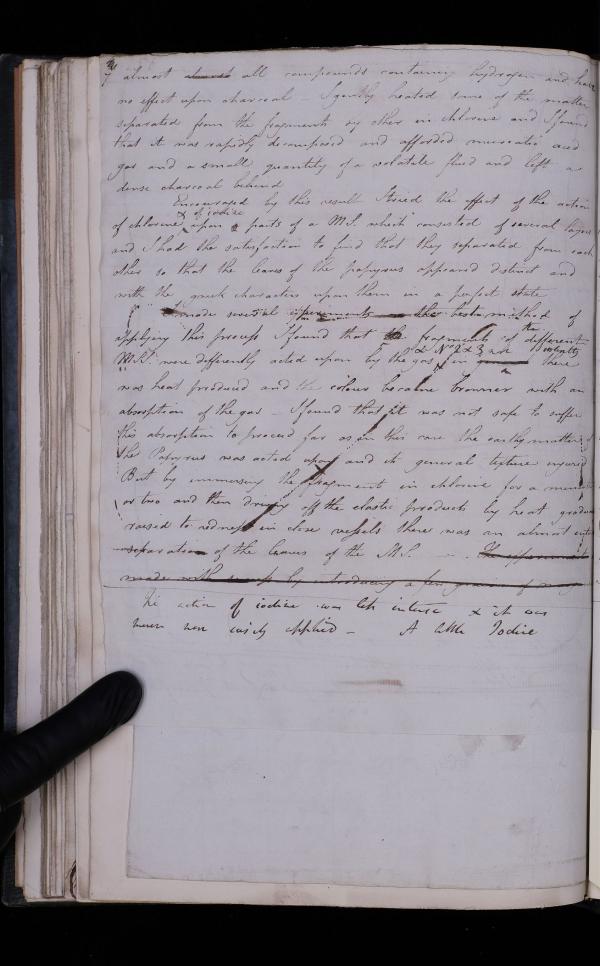 7 almost almost all compounds containing hydrogen and have
no effect upon charcoal – I gently heated some of the matter
separated from the fragments by ether in chlorine and I found
that it was rapidly decomposed and afforded muriatic acid
gas and a small quantity of a volatile fluid and left a
dense charcoal behind
Encouraged by this result I tried the effect of the action
& of iodine
of chlorine upon parts of a M.S. which consisted of several layers
and I had the satisfaction to find that they separated from each
other so that the leaves of the papyrus appeared distinct and
with the greek characters upon them in a perfect state
made several experiments the best method of
applying this process I found that the fragments of the different
MSS. were differently acted upon by the gas in there
& No 2 & 3
was heat produced and the colour became browner with an
absorption of the gas – I found that it was not safe to suffer
this absorption to proceed far as in this case the earthy matter of
the Papyrus was acted upon and its general texture injured
But by immersing the fragment in chlorine for a minute
or two and then driving off the elastic products by heat gradually
raised to redness in close vessels there was an almost
separation of the leaves of the M.S. The experiment
made with by introducing a few grains of
The action of iodine was less intense & it was
never more easily applied – A little Iodine